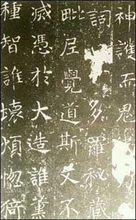 神護而
詞多羅秘藏
毗尼覺道斯文不
滅憑於大造誰薰
種智誰壞煩惱猗